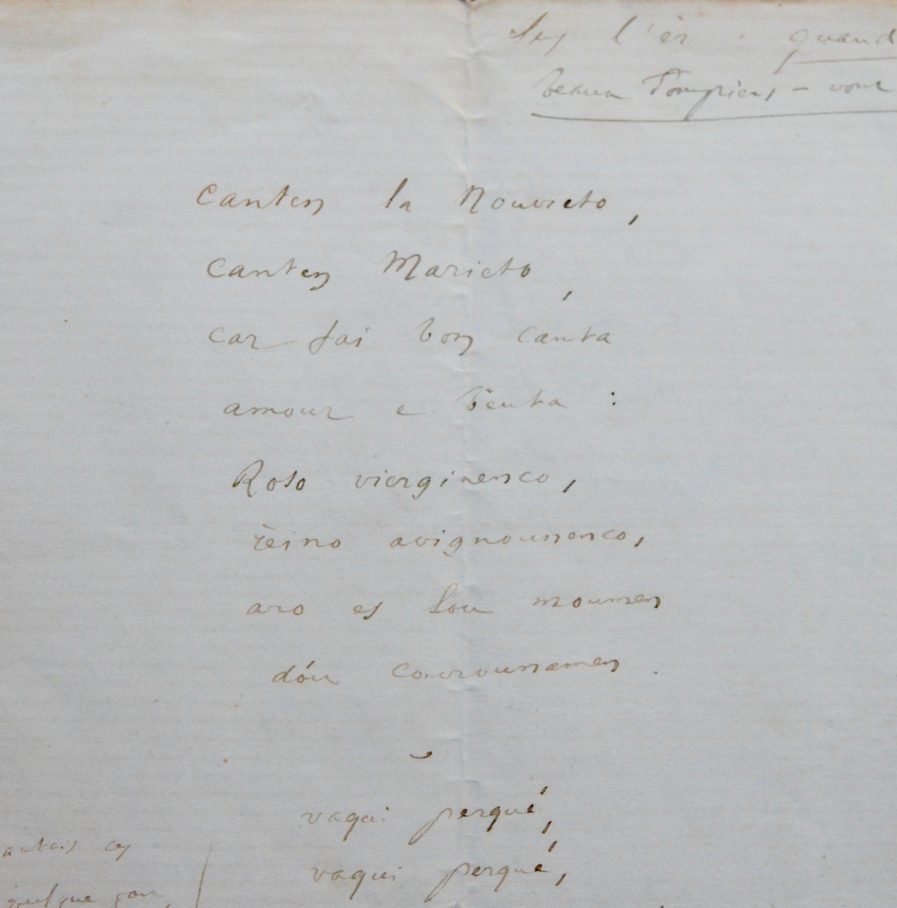 Sus l'èr : quand
beaux Pompiers, – vour
Canten la Nouvieto,
Canten Marieto,
car fai bon canta
amour e bèuta :
Roso vierginenco,
rèino avignounenco,
aro es lou moumen
dóu courounamen.
vaqui perqué,
vaqui perqué,
quelque jour,